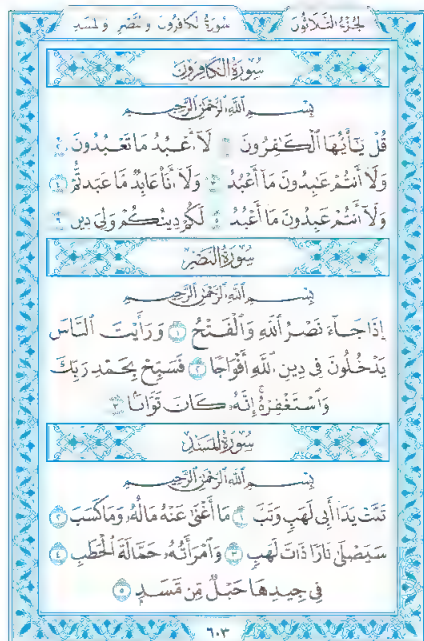 الجزء الثلاثون
سورة الكافرون والنصر والمسد
سورة الكافرون
بسم الله الرحمن الرحيم
قُلْ يَٰٓأَيُّهَا ٱلْكَٰفِرُونَ ١ لَآ أَعْبُدُ مَا تَعْبُدُونَ ٢
وَلَآ أَنتُمْ عَٰبِدُونَ مَآ أَعْبُدُ ٣ وَلَآ أَنَا۠ عَابِدٌ مَّا عَبَدتُّمْ ٤
وَلَآ أَنتُمْ عَٰبِدُونَ مَآ أَعْبُدُ ٥ لَكُمْ دِينُكُمْ وَلِىَ دِينِ ٦
سورة النصر
بسم الله الرحمن الرحيم
إِذَا جَآءَ نَصْرُ ٱللَّهِ وَٱلْفَتْحُ ١ وَرَأَيْتَ ٱلنَّاسَ
يَدْخُلُونَ فِى دِينِ ٱللَّهِ أَفْوَاجًا ٢ فَسَبِّحْ بِحَمْدِ رَبِّكَ
وَٱسْتَغْفِرْهُ إِنَّهُۥ كَانَ تَوَّابًۢا ٣
سورة المسد
بسم الله الرحمن الرحيم
تَبَّتْ يَدَآ أَبِى لَهَبٍ وَتَبَّ ١ مَآ أَغْنَىٰ عَنْهُ مَالُهُۥ وَمَا كَسَبَ ٢
سَيَصْلَىٰ نَارًا ذَاتَ لَهَبٍ ٣ وَٱمْرَأَتُهُۥ حَمَّالَةَ ٱلْحَطَبِ ٤
فِى جِيدِهَا حَبْلٌ مِّن مَّسَدٍۭ ٥
٦٠٣